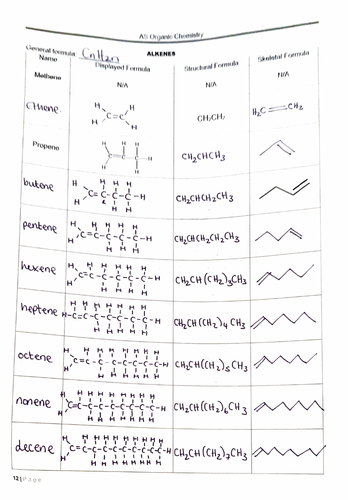 AS Organic Chemistry
General formula: CnH2n
ALKENES
Name Displayed Formula Structural Formula Skeletal Formula
Methene N/A N/A N/A
Ethene H H C=C H H CH2CH2 H2C=CH2
Propene CH2CHCH3
butene CH2CHCH2CH3
pentene CH2CHCH2CH2CH3
hexene CH2CH(CH2)3CH3
heptene CH2CH(CH2)4CH3
octene CH2CH(CH2)5CH3
nonene CH2CH(CH2)6CH3
decene CH2CH(CH2)7CH3
12 | Page